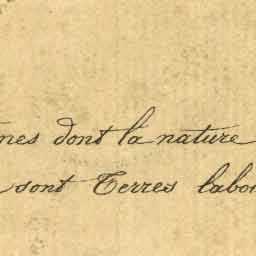 nes dont la nature
sont Terres labou